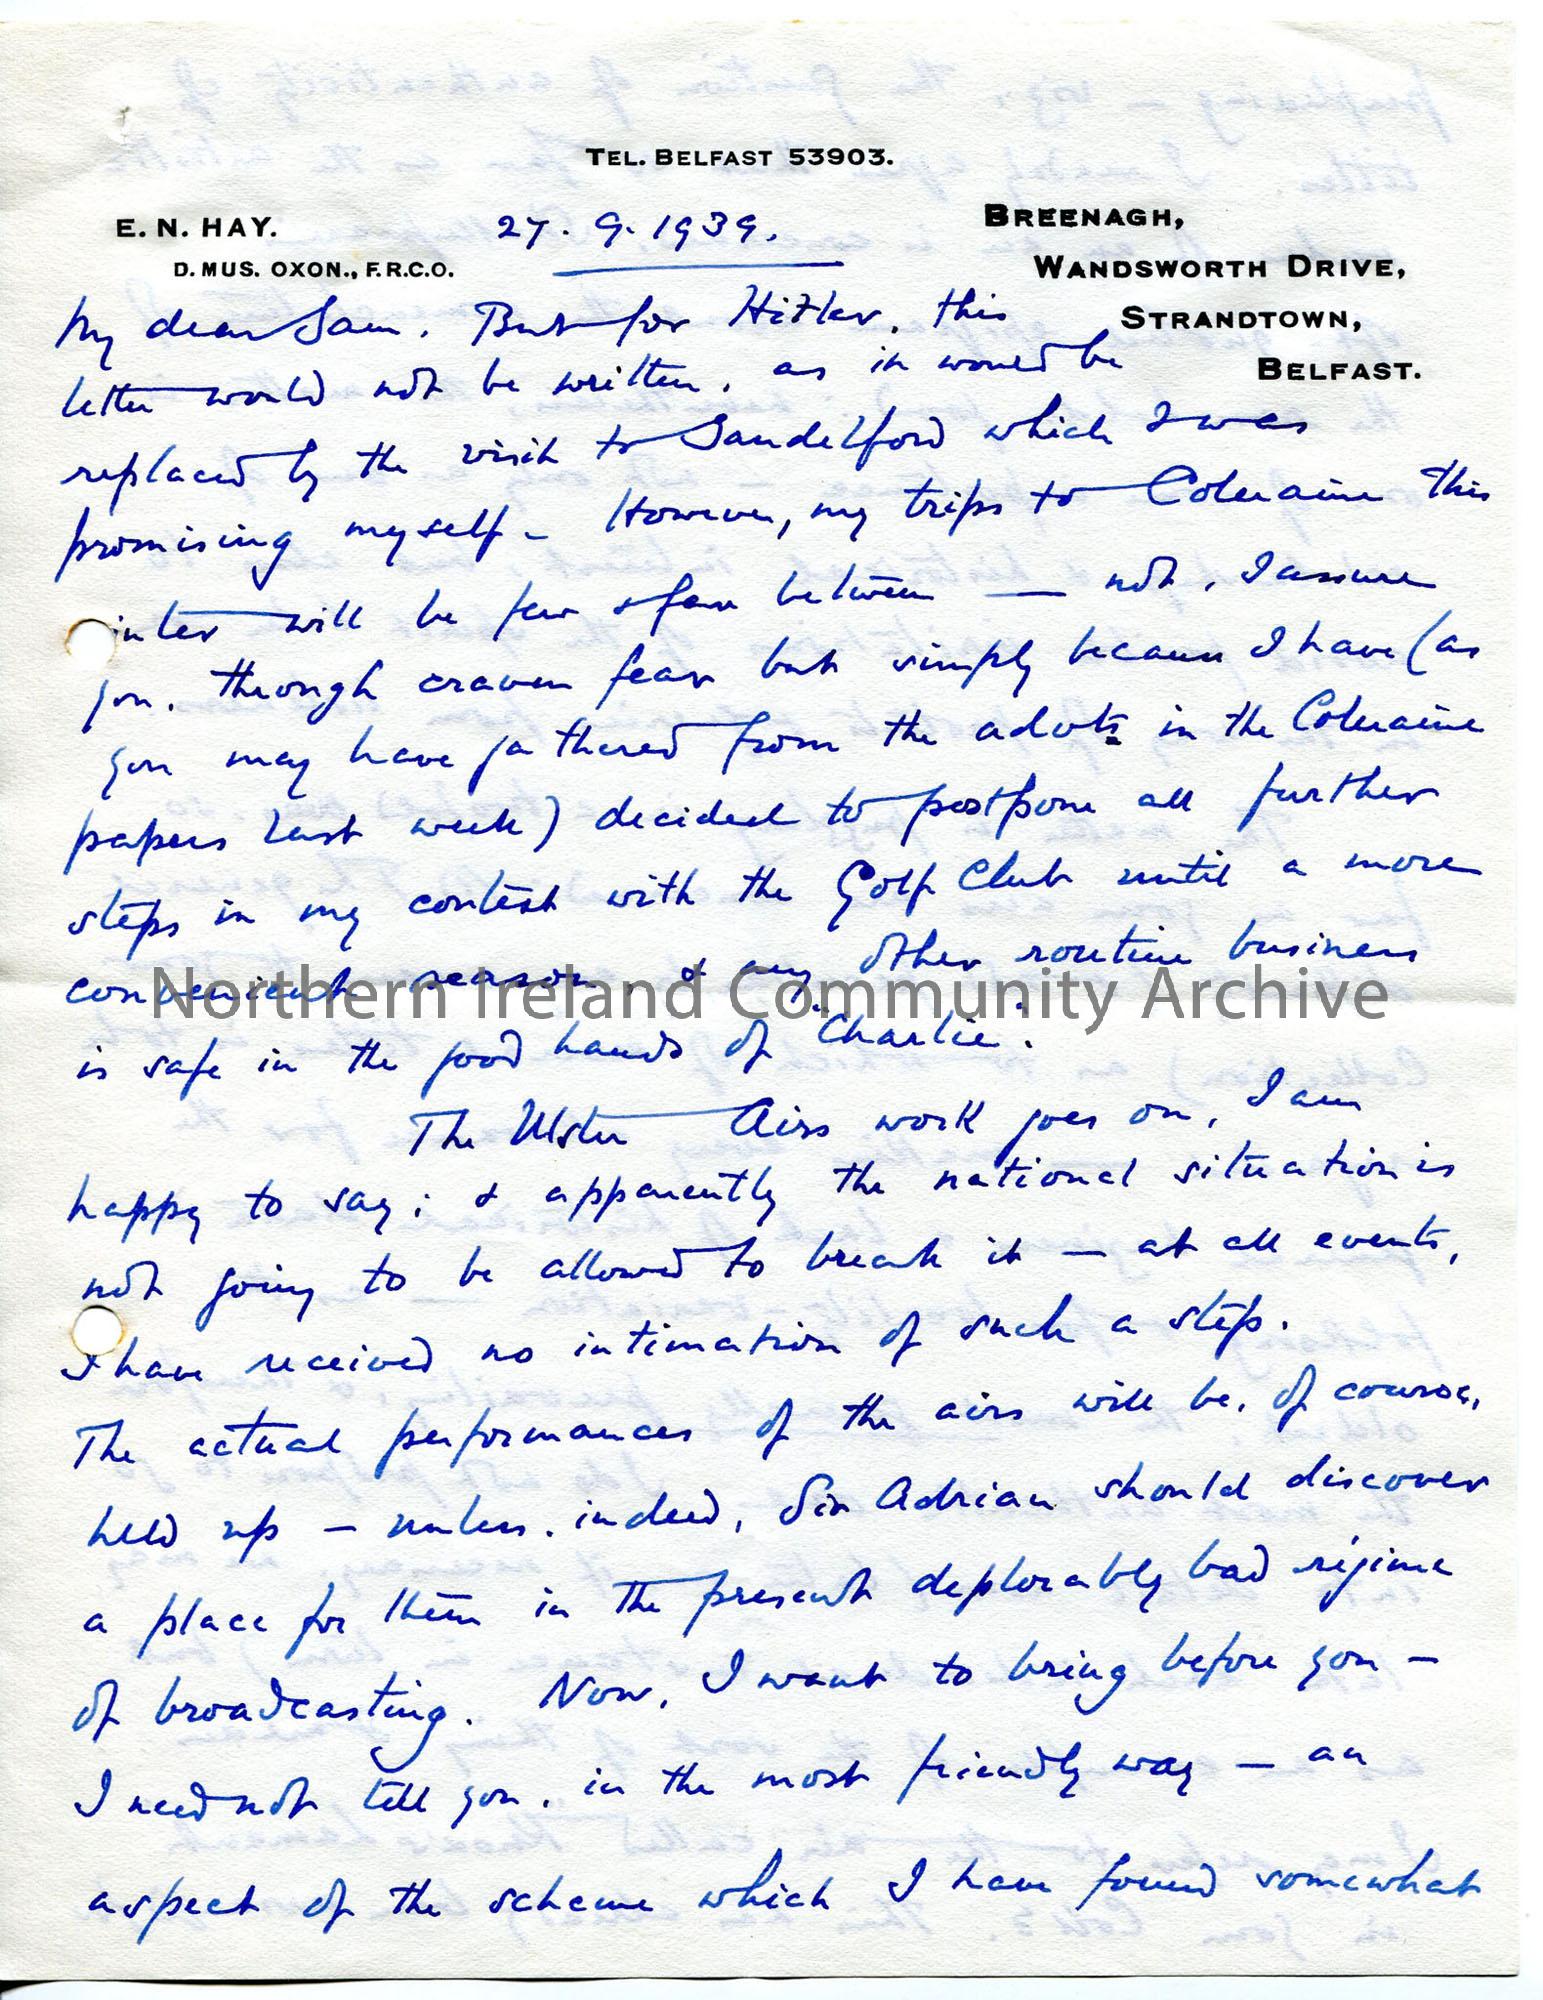 TEL. BELFAST 53903.
E. N. HAY.
D. MUS. OXON., F.R.C.O.
27. 9. 1939.
BREENAGH,
WANDSWORTH DRIVE,
STRANDTOWN,
BELFAST.
My dear Sam. But for Hitler, this
letter would not be written, as in would be
replaced by the visit to Sandelford which I was
promising myself - However, my trips to Coleraine this
inter will be few & far between — not, I assure
you, through craven fear but simply because I have (as
you may have gathered from the advts in the Coleraine
papers last week) decided to postpone all further
steps in my contest with the Golf Club until a more
convenient season, & any other routine business
is safe in the good hands of "Charlie".
The Ulster Airs work goes on, I am
happy to say; & apparently the national situation is
not going to be allowed to break it — at all events,
I have received no intimation of such a step.
The actual performances of the airs will be, of course,
held up — unless, indeed, Sir Adrian should discover
a place for them in the present deplorably bad régime
of broadcasting. Now, I want to bring before you —
I need not tell you, in the most friendly way — an
aspect of the scheme which I have found somewhat
Northern Ireland Community Archive